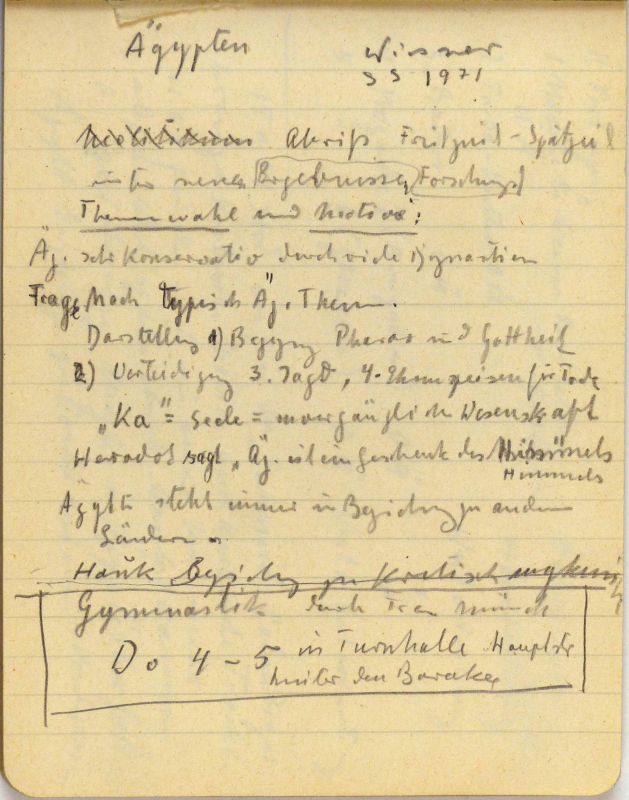 Ägypten
Wiesner
SS 1971
Abriß Frühzeit - Spätzeit
unter neuen Ergebnissen Forschung
Themenwahl und Motive:
Äg. sehr Konservativ durch viele Dynastien
Frage Nach typisch Äg. Themen.
Darstellung 1) Begegng Pharao und Gottheit
2) Verteidigung 3. Jagd, 4. für Tode
„Ka" = Seele = unvergängliche Wesenskraft
Herodot sagt „Äg. ist ein Geschenk des
Himmels
steht immer in Beziehung zu andern
Ländern.
Beziehung zu Kretisch
Gymnastik durch Frau
Do 4-5 in Turnhalle Hauptstr
hinter den Baracken